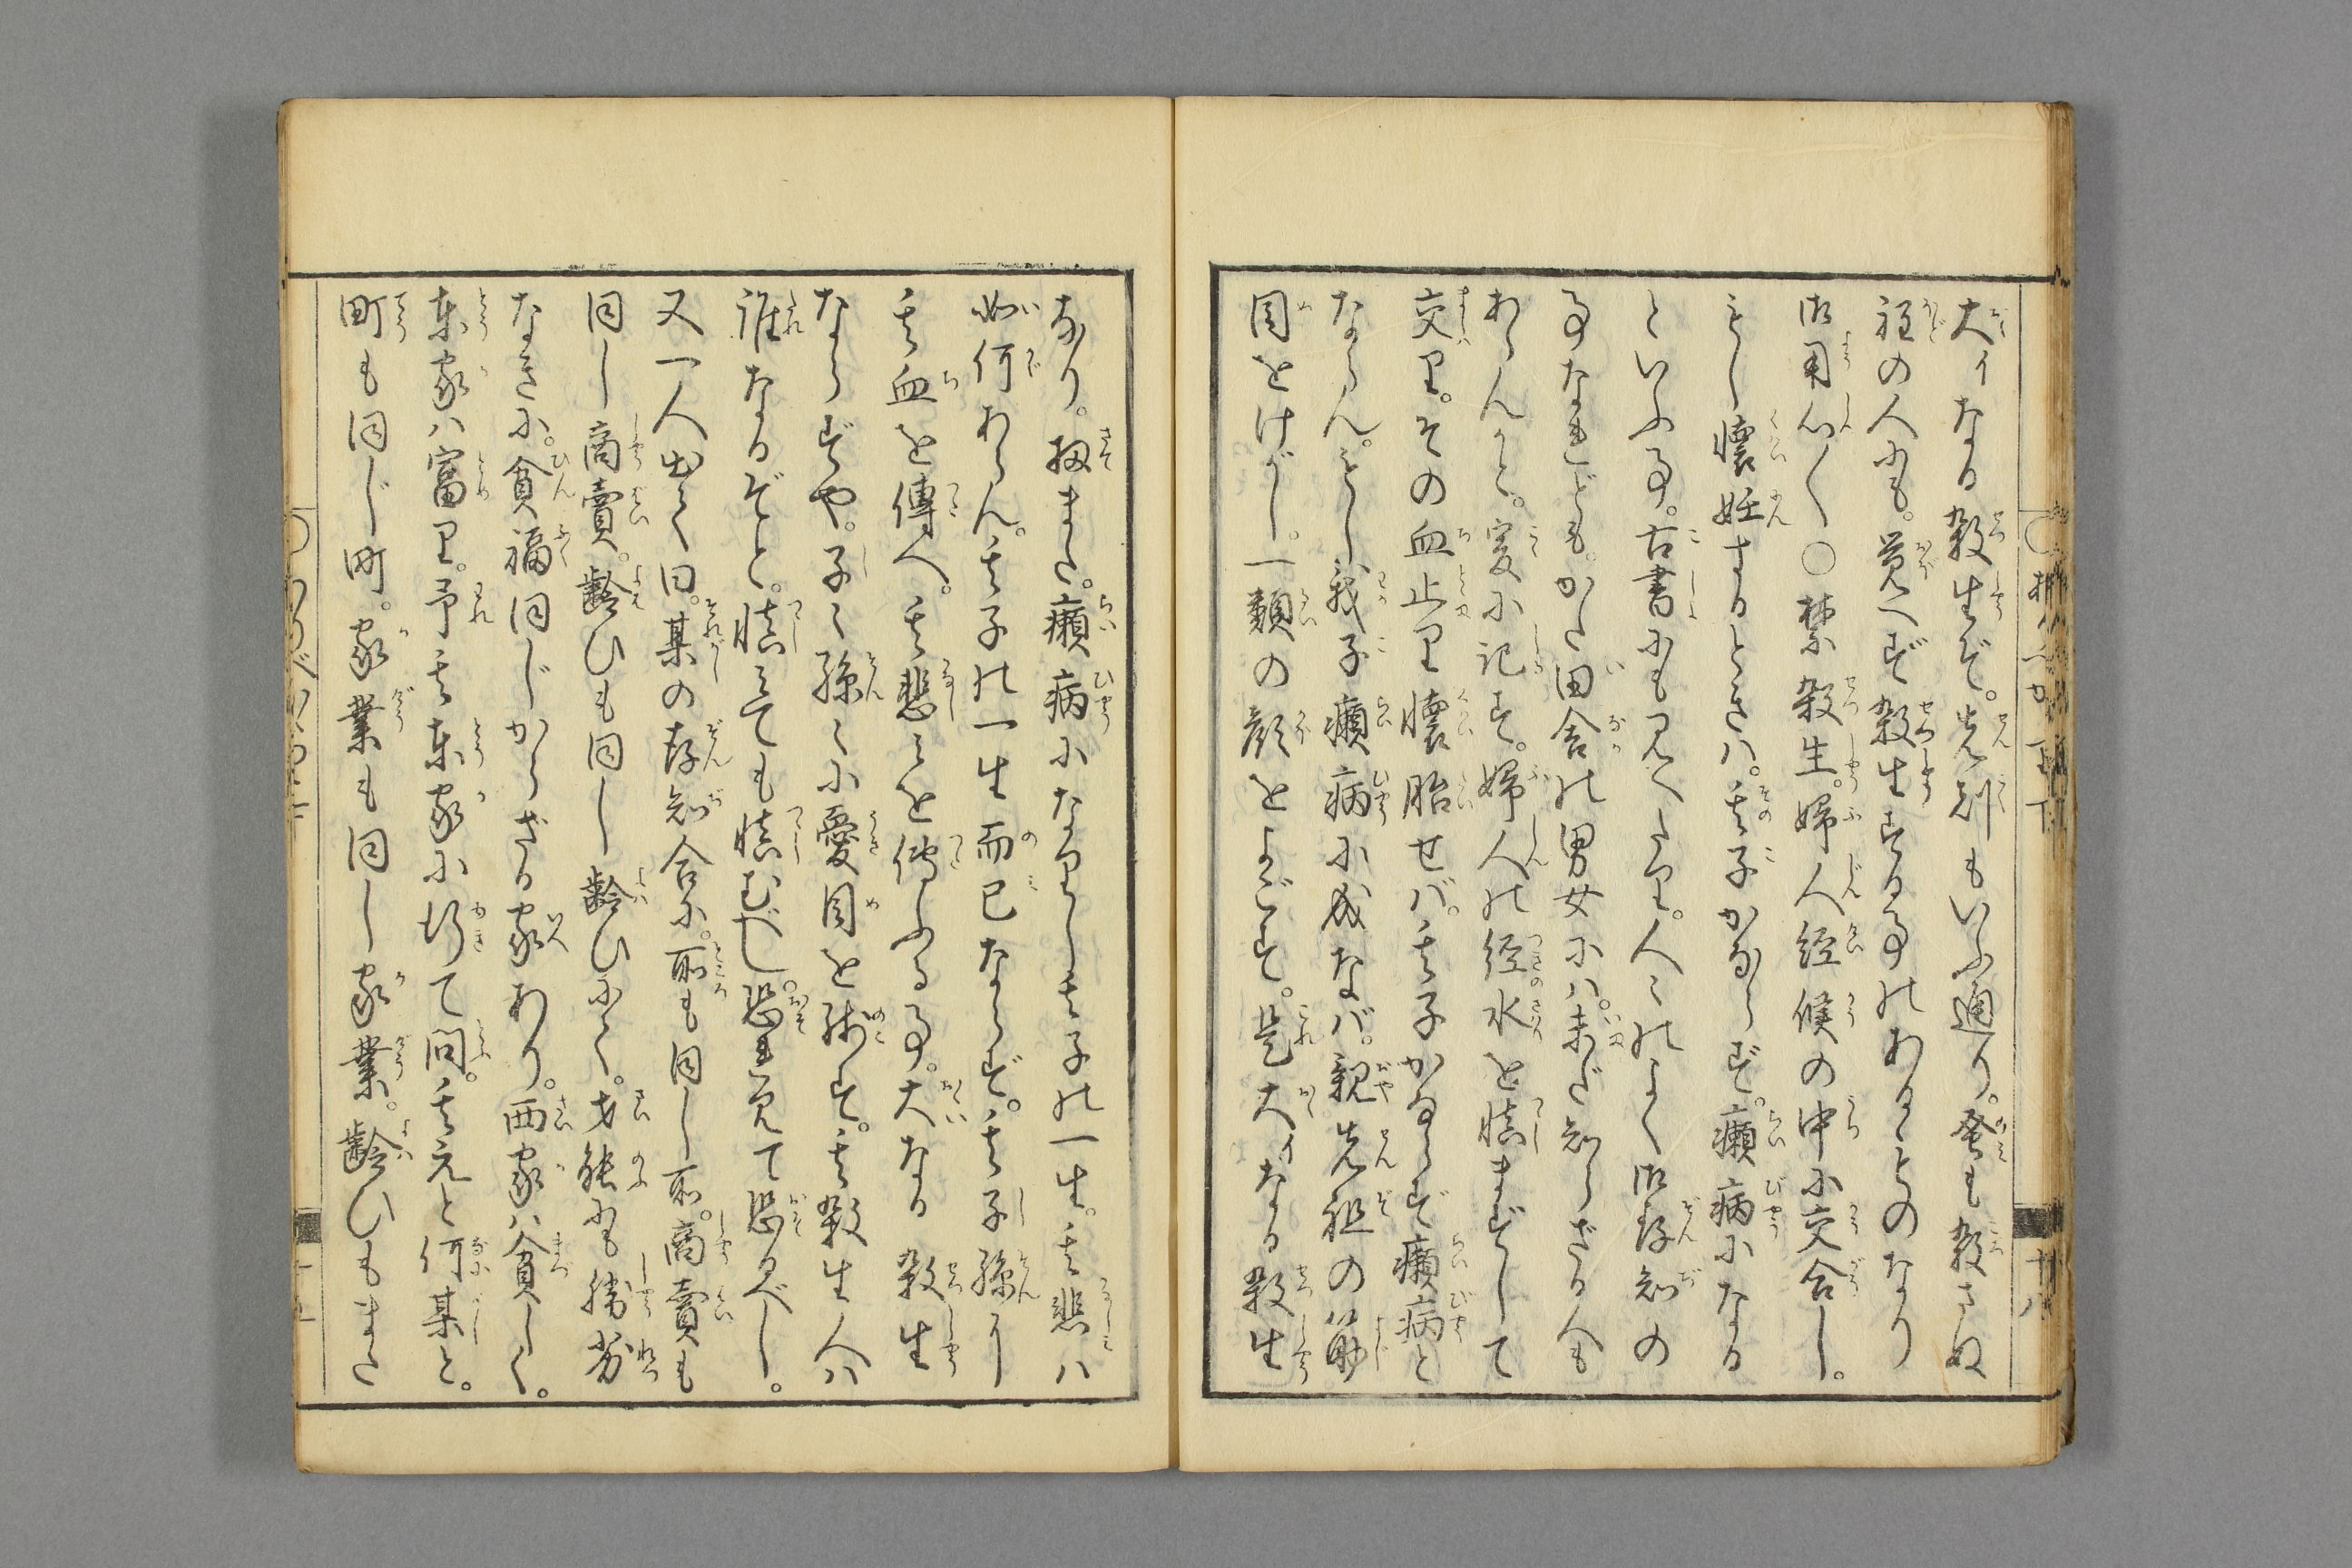 大イなる殺生ぞ。先刻もいふ通り。蚤も殺さぬ
程の人にも。覚へず殺生する事のあるものなり
御用心〱〇禁殺生。婦人経候の中に交合し。
もし懐妊するときハ。其子かならず。癩病になる
といふ事。古書にも見へたり。人〻のよく御存知の
事なれども。かた田舎の男女にハ。未だ知らざる人も
あらんかと。爰に記す。婦人の経水を慎まずして
交り。その血止り懐胎せバ。其子かならず癩病と
ならん。もし我子癩病に成なバ。親先祖の筋
目をけがし。一類の顔をよごす。是大イなる殺生
なり。扨また。癩病になりし其子の一生。其悲ハ
如何あらん。其子の一生而已ならず。其子孫に
其血を傳へ。其悲みを傳ふる事。大なる殺生
ならずや。子〻孫〻に憂目を残す。其殺生人ハ
誰なるぞと。慎みても慎むべし。恐れ見て恐るべし。
又一人出て曰。某の存知合に。所も同し所。商賣も
同し商賣。齢ひも同し齢ひにて。才能にも勝劣
なきに。貧福同じからざる家あり。西家ハ貧しく。
東家ハ富り。予其東家に行て問。其元と何某と。
町も同じ町。家業も同し家業。齢ひもまた
十八